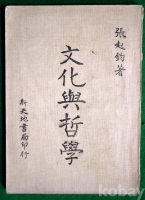 張起鈞著
文化與哲學
新天地書局印行
kobay